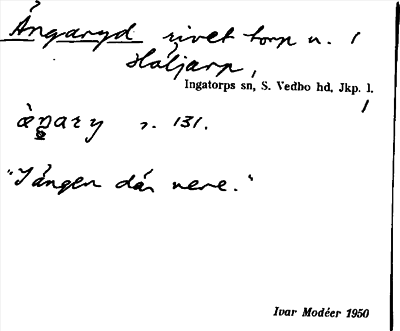 Ångaryd rivet torp u. 1
Håljarp,
Ingatorps sn, S. Vedbo hd, Jkp. l.
s. 131.
"I ången där nere."
Ivar Modéer 1950